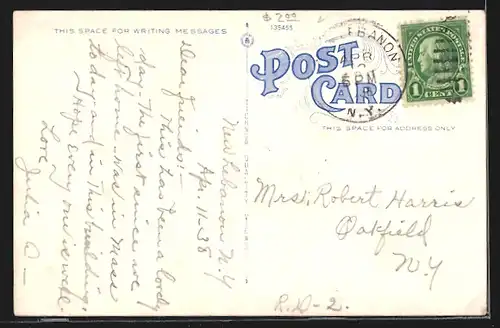 $2.00
135455
THIS SPACE FOR WRITING MESSAGES
POST
CARD
THIS SPACE FOR ADDRESS ONLY
EBANON
APR
12
6 PM
N.Y.
UNITED STATES POSTAGE
1 CENT 1
New Lebanon N.Y
Apr. 11-38
Dear friends:-
This has been a lovely
day. The first since we
left home. Was in Mass
to-day and in this building.
Hope every one is well.
Love
Julia D—
Mrs. Robert Harris
Oakfield
N.Y
R.D-2.